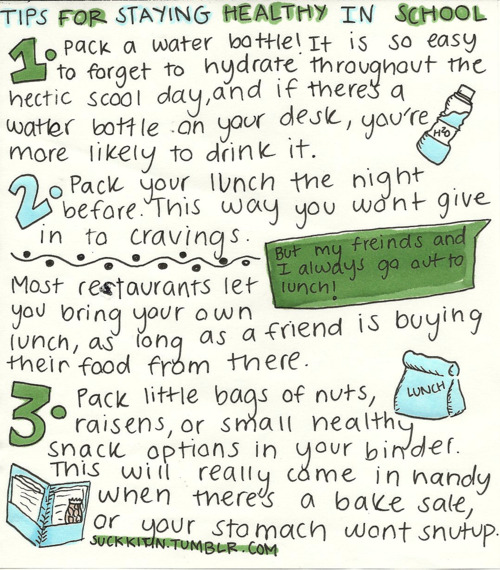 TIPS FOR STAYING HEALTHY IN SCHOOL
1. Pack a water bottle! It is so easy
to forget to hydrate throughout the
hectic scool day, and if there's a
watter bottle on your desk, you're
more likely to drink it.
H²O
2. Pack your lunch the night
before. This way you wont give
in to cravings.
But my freinds and
I always go out to
lunch!
Most restaurants let
you bring your own
lunch, as long as a friend is buying
their food from there.
LUNCH
3. Pack little bags of nuts,
raisens, or small healthy
snack options in your binder.
This will really come in handy
when there's a bake sale,
or your stomach wont shutup.
SUCKKITIN.TUMBLR.COM